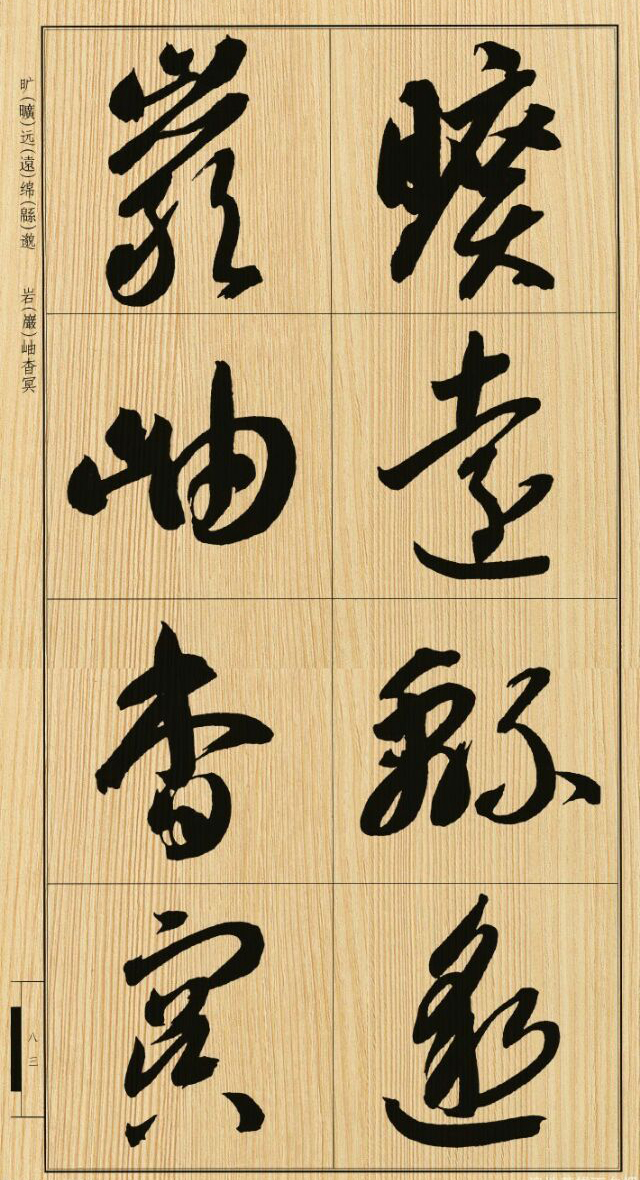 曠遠緜邈
巖岫杳冥
旷(曠)远(遠)绵(緜)邈　岩(巖)岫杳冥
八三